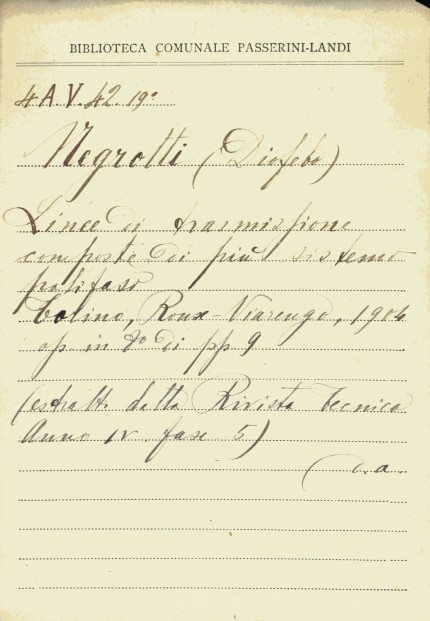 BIBLIOTECA COMUNALE PASSERINI-LANDI
4 A.V. 42. 19°
Negrotti (Diofebo)
Linee di trasmissione
composte di più sistemo
polifaso
Torino, Roux-Viarengo, 1904
op in 8° di pp 9
(estratt. dalla Rivista tecnica
Anno IV fasc 5)
(c. a.